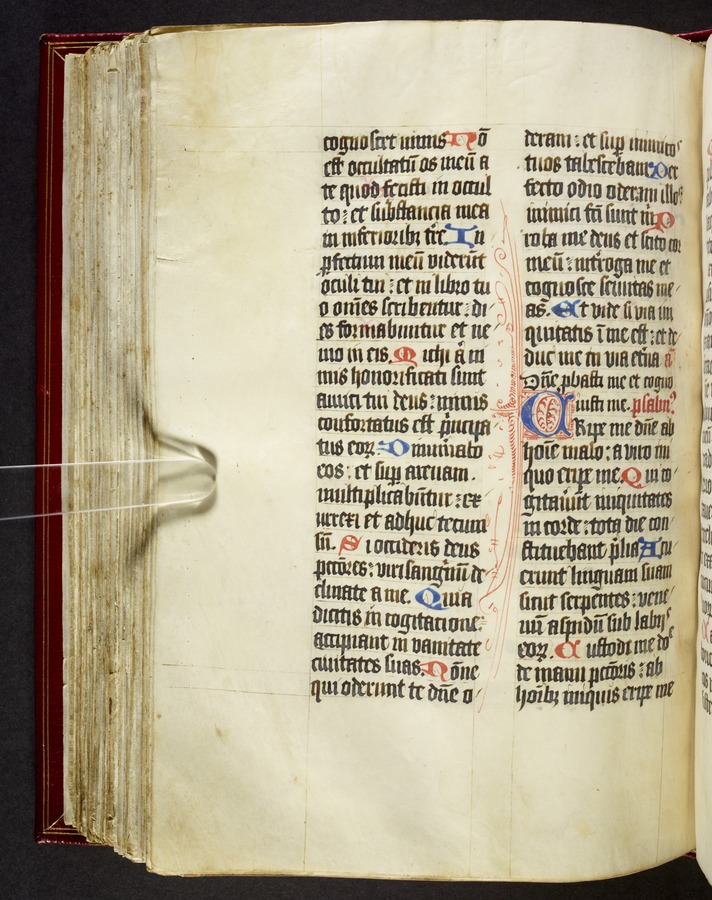 cognoscet nimis Nō
est occultatū os meū a
te quod fecisti in occul
to : et substancia mea
in inferioribꝫ tre. In
ꝑfectum meū viderūt
oculi tui : et in libro tu
o om̄es scribentur : di
es formabuntur et ne
mo in eis. Michi
mis honorificati sunt
amici tui deus : nimis
confortatus est pncipa
tus eoꝝ. Dinumerabo
eos : et suꝑ arenam.
multiplicabūntur : ex
urrexi et adhuc tecum
sū. Si occideris deus
pctōres : viri sangwinū de
clinate a me. Quia
dicitis in cogitacione :
accipiant in vanitate
civitates suas. Nōne
qui oderunt te dn̄e o
deram : et suꝑ inimicos
tuos tabescebam. Per
fecto odio oderam illos
inimici fc̄i sunt m. P
roba me deus et scito cor
meū : interroga me et
cognosce semitas me
as. Et vide si via in
iquitatis ī me est : et de
duc me in via etna
Dn̄e ꝓbasti me et cogno
visti me. psalm
Eripe me dn̄e ab
hoīe malo : a viro ini
quo eripe me. Qui co
gitaverūt iniquitates
in corde : tota die con
stituebant plia Acu
erunt linguam suam
sicut serpentes : vene
nū aspidū sub labijs
eoꝝ. Custodi me do
de manu pctōris : ab
hoībꝫ iniquis eripe me